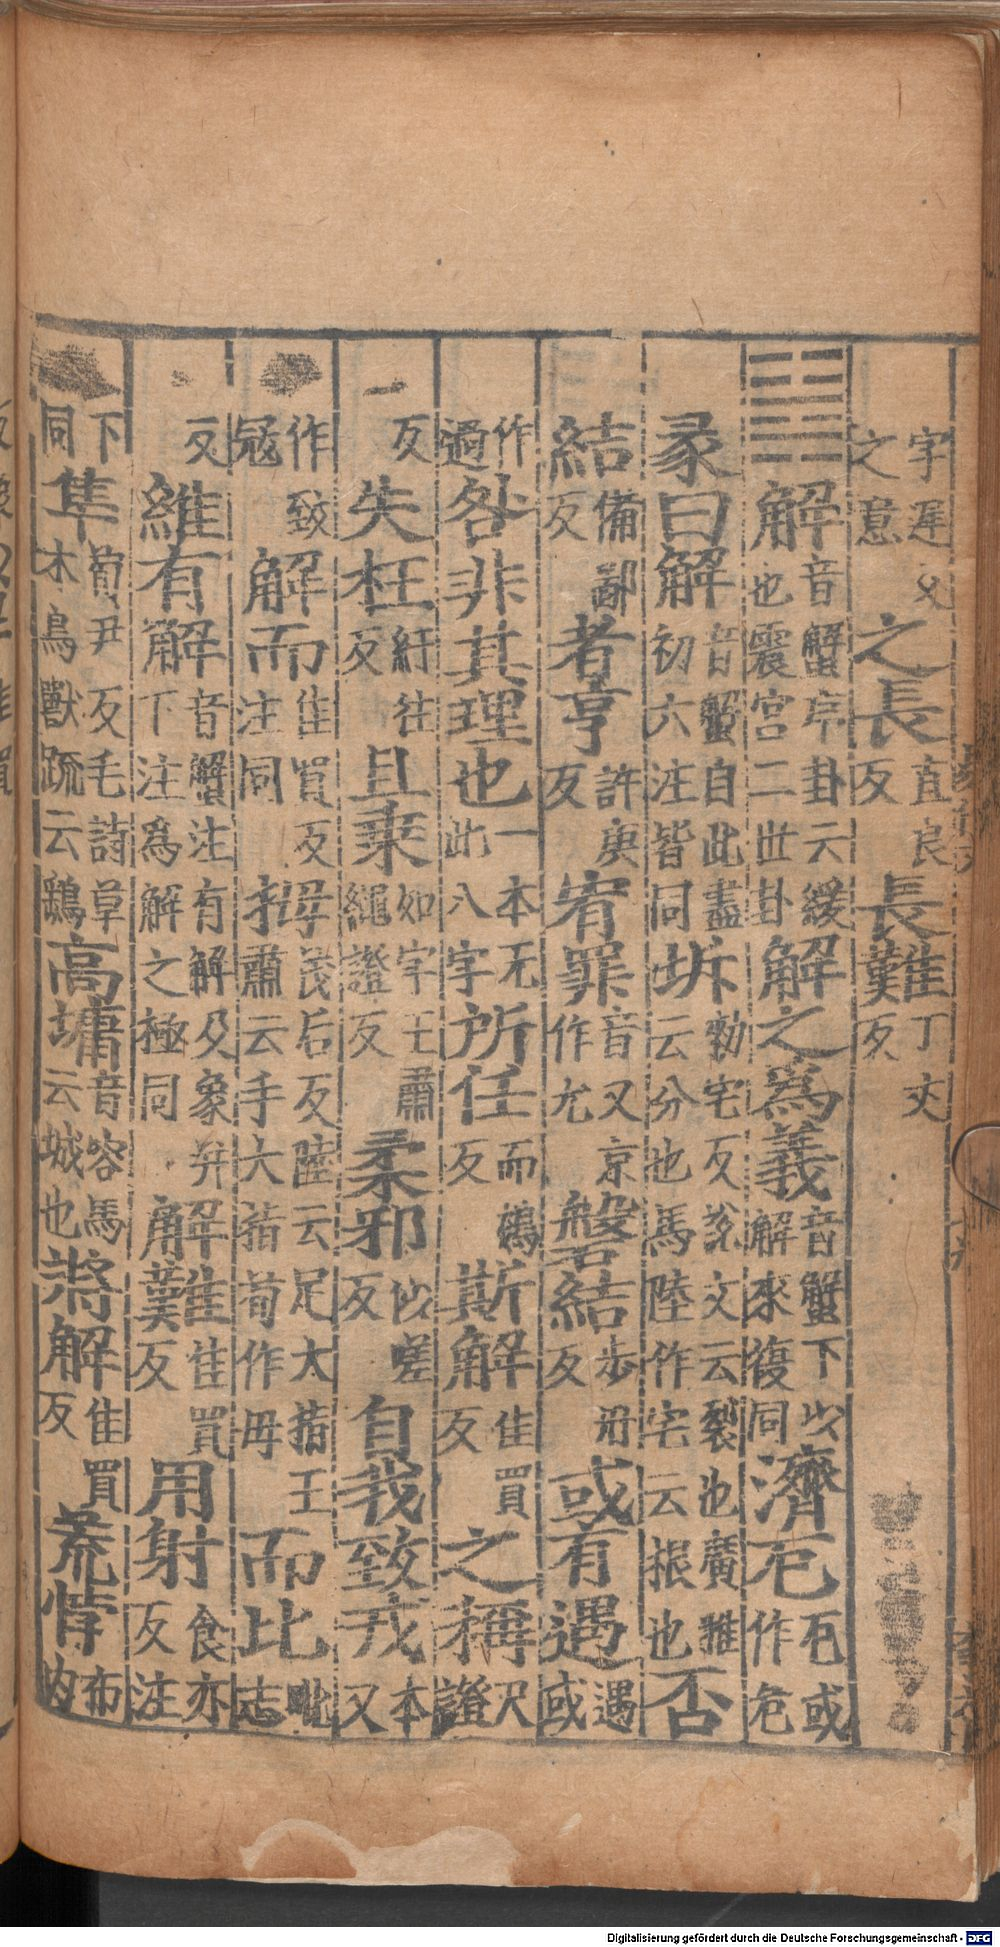 字遲又之意之長直良反長難丁丈反
䷧解音蟹序卦云緩也震宮二世卦解之為義音蟹下以解來復同濟厄厄或作危
彖曰解音蟹自此盡初六注皆同坼勑宅反說文云裂也廣雅云分也馬陸作宅云根也否
結備鄙反者亨許庚反宥罪音又京作尤磐結步毋反或有遇遇或
作過咎非其理也一本无此八字所任而鴆反斯解佳買反之稱尺證
反失枉紆往反且乘如字王肅繩證反柔邪似嗟反自我致戎本又
作致寇解而佳買反注同拇茂后反陸云足大指王肅云手大指荀作母而比毗志
反維有解音蟹注有解及象并下注為解之極同解難佳買反用射食亦反注
下同隼荀尹反毛詩草木鳥獸䟽云鷂高墉音容馬云城也將解佳買反荒悖布內
Digitalisierung gefördert durch die Deutsche Forschungsgemeinschaft - DFG